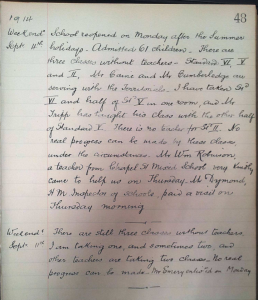 43
1914
Week end School reopened on Monday after the Summer
Sept 11th holidays. Admitted 61 children. There are
three classes without teachers - Standard VI, V
and II, Mr and Mr are
serving with the I have taken Std
VI and half of St V in one room, and Mr
Tripp has taught his class with the other half
of Standard V. There is no teacher for St II. No
real progress can be made by these classes
under the circumstances. Mr Wm Robinson,
a teacher from Chapel St Mixed School very kindly
came to help us on Thursday. Mr
H.M. Inspector of Schools, paid a visit on
Thursday morning
Week end There are still three classes without teachers.
Sept 11th I am taking one, and sometimes two, and
other teachers are taking two classes. No real
progress can be made. Mr on Monday